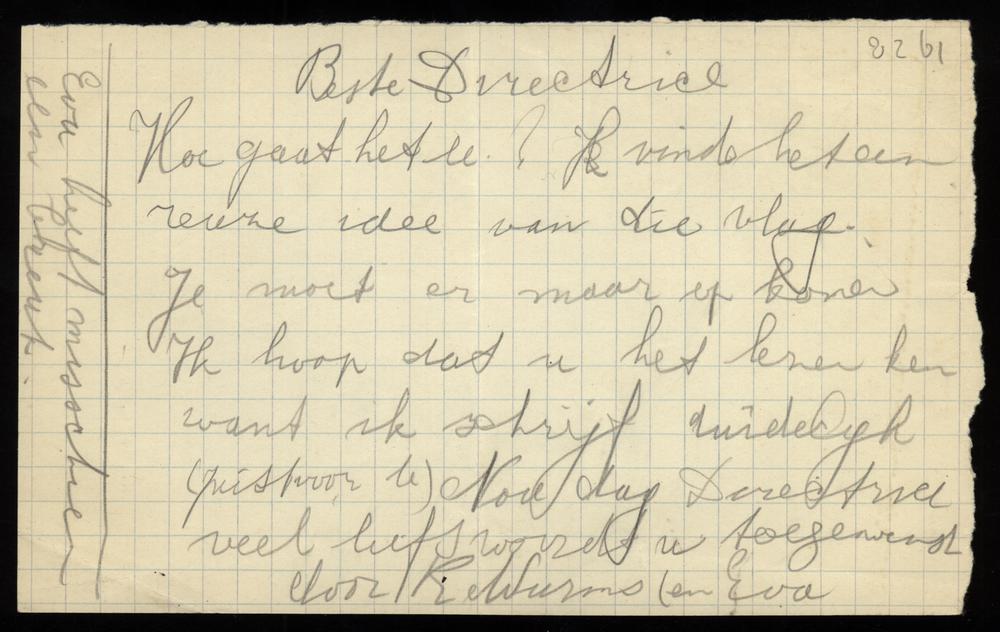 8261
Beste Directrice
Hoe gaat het le. ? Ik vind het een
reuze idee van die vlag.
Je moet er maar op komen
Ik hoop dat u het lezen ken
want ik schrijf duidelyk
(juist voor le) Nou dag Directrice
veel liefs wordt u toegewenst
door R Wurms (en Eva
Eva heeft misschien
een krant.